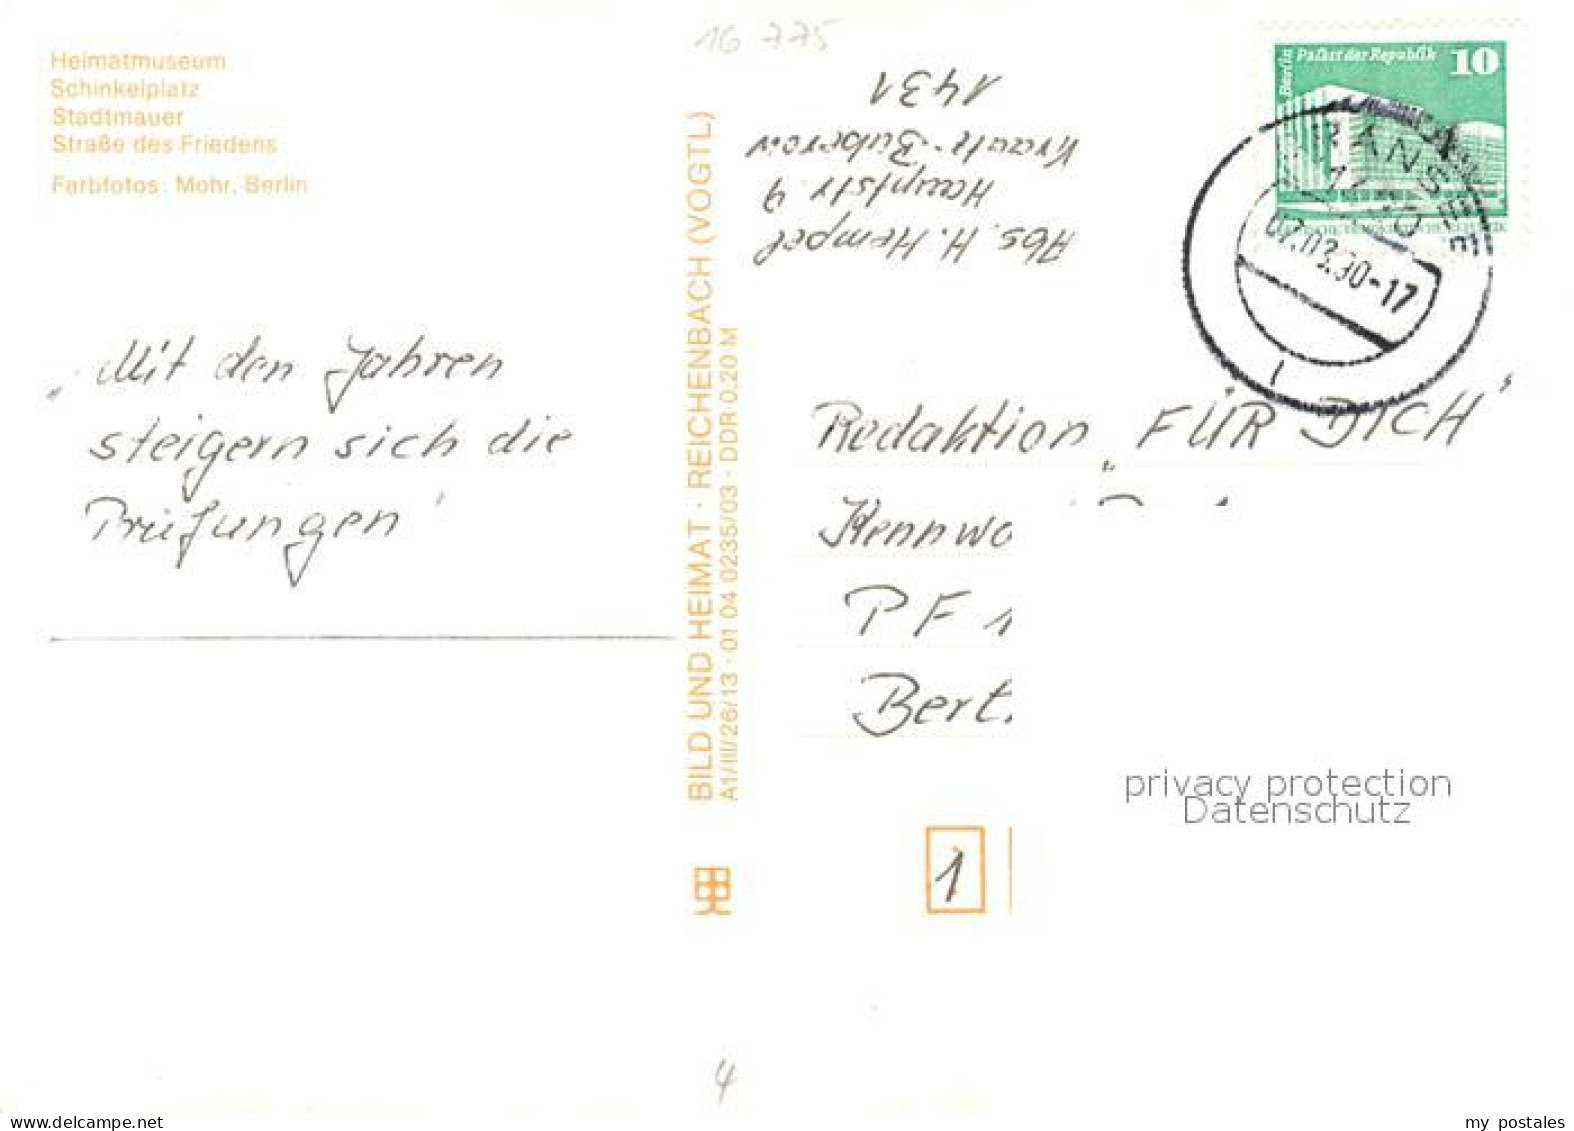 16 775
Heimatmuseum
Schinkelplatz
Stadtmauer
Straße des Friedens
Farbfotos: Mohr, Berlin
„Mit den Jahren
steigern sich die
Prüfungen“
BILD UND HEIMAT · REICHENBACH (VOGTL)
A1/III/26/13 · 01 04 0235/03 · DDR 0,20 M
Abs. H. Hempel
Hauptstr 9
1431
Berlin Palast der Republik 10
GRANSEE
07.03.90-17
Redaktion „FÜR DICH“
Kennwo
PF 1
Berl
1
privacy protection
Datenschutz
4
www.delcampe.net
my_postales